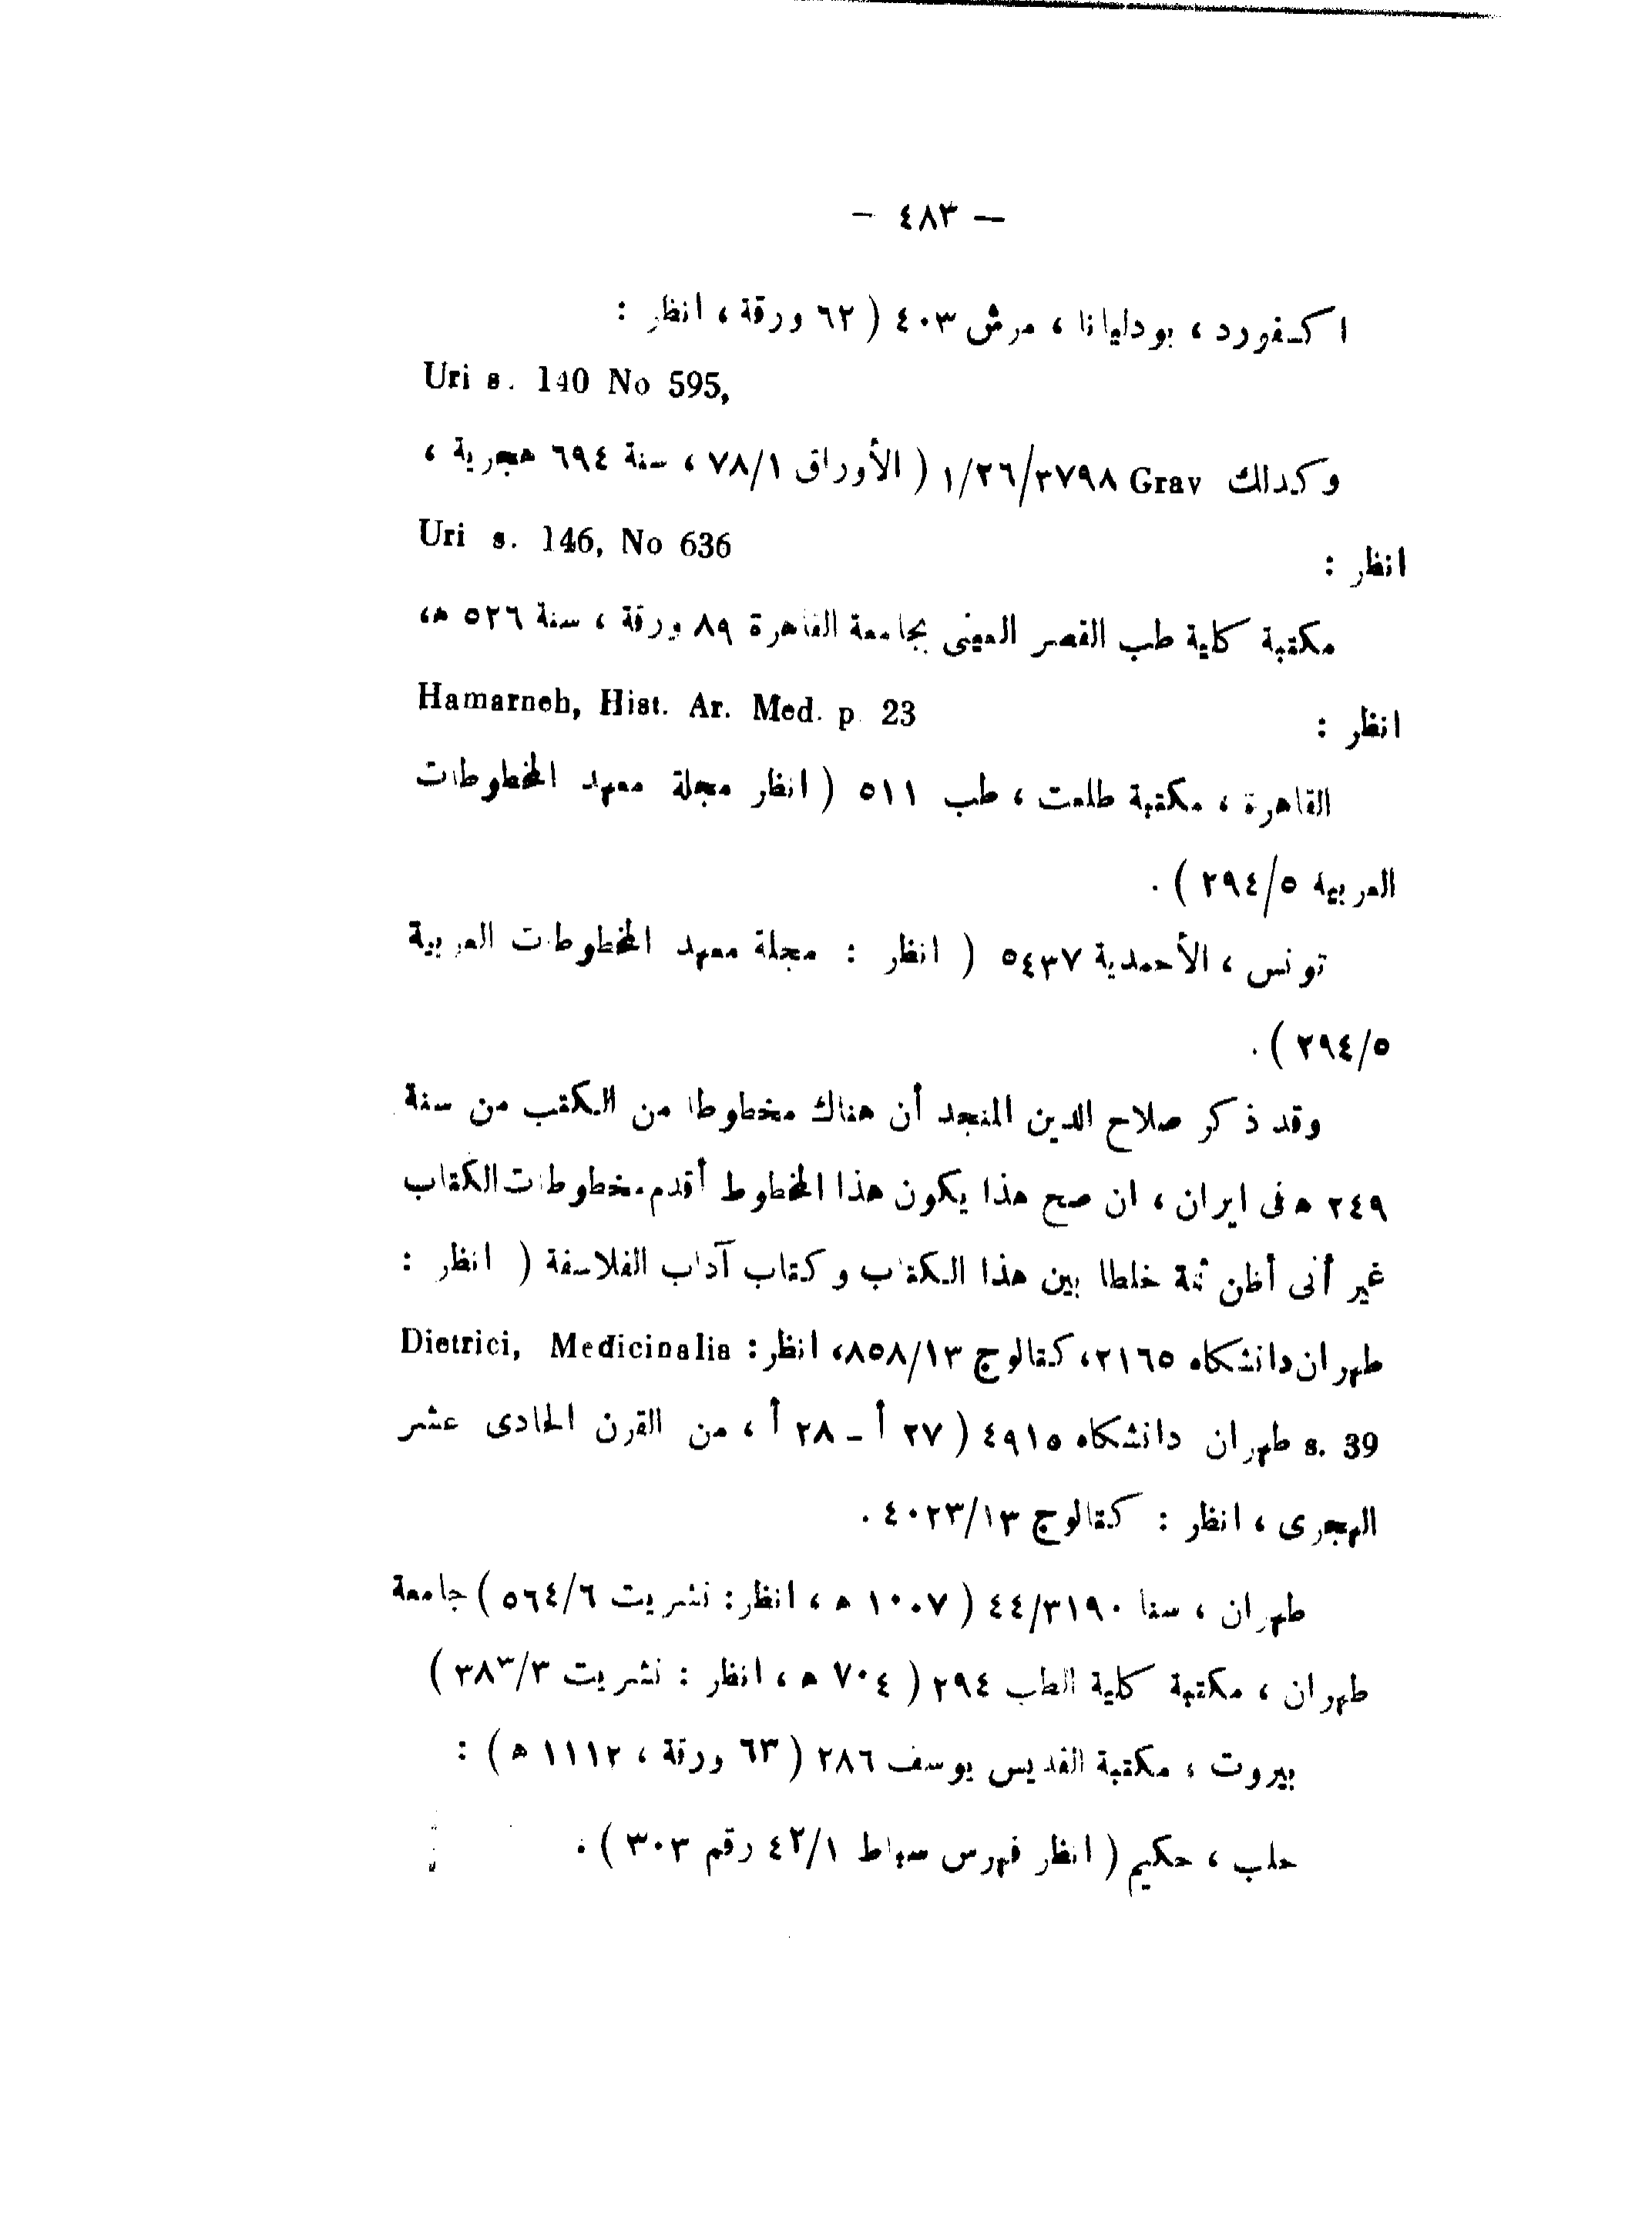 — ٤٨٣ —
اكسفورد ، بودليانا ، مرش ٤٠٣ ( ٦٢ ورقة ، انظر :
Uri s. 140 No 595,
وكدالك Grav ١/٢٦/٣٧٩٨ ( الأوراق ٧٨/١ ، سنة ٦٩٤ هجرية ،
انظر : Uri s. 146, No 636
مكتبة كلية طب القصر العينى بجامعة القاهرة ٨٩ ورقة ، سنة ٥٢٦ ه،
انظر : Hamarneh, Hist. Ar. Med. p. 23
القاهرة ، مكتبة طلعت ، طب ٥١١ ( انظر مجلة معهد المخطوطات
العربية ٢٩٤/٥ ) .
تونس ، الأحمدية ٥٤٣٧ ( انظر : مجلة معهد المخطوطات العربية
٢٩٤/٥ ) .
وقد ذكر صلاح الدين المنجد أن هناك مخطوطا من الكتب من سنة
٢٤٩ ه فى ايران ، ان صح هذا يكون هذا المخطوط أقدم مخطوطات الكتاب
غير أنى أظن ثمة خلطا بين هذا الكتاب وكتاب آداب الفلاسفة ( انظر :
طهران دانشكاه ٢١٦٥، كتالوج ٨٥٨/١٣، انظر : Dietrici, Medicinalia
s. 39 طهران دانشكاه ٤٩١٥ ( ٢٧ أ ـ ٢٨ أ ، من القرن الحادى عشر
الهجرى ، انظر : كتالوج ٤٠٢٣/١٣ .
طهران ، سنا ٤٤/٣١٩٠ ( ١٠٠٧ ه ، انظر : نشريت ٥٦٤/٦ ) جامعة
طهران ، مكتبة كلية الطب ٢٩٤ ( ٧٠٤ ه ، انظر : نشريت ٣٨٣/٣ )
بيروت ، مكتبة القديس يوسف ٢٨٦ ( ٦٣ ورقة ، ١١١٢ ه ) :
حلب ، حكيم ( انظر فهرس سباط ٤٢/١ رقم ٣٠٣ ) .